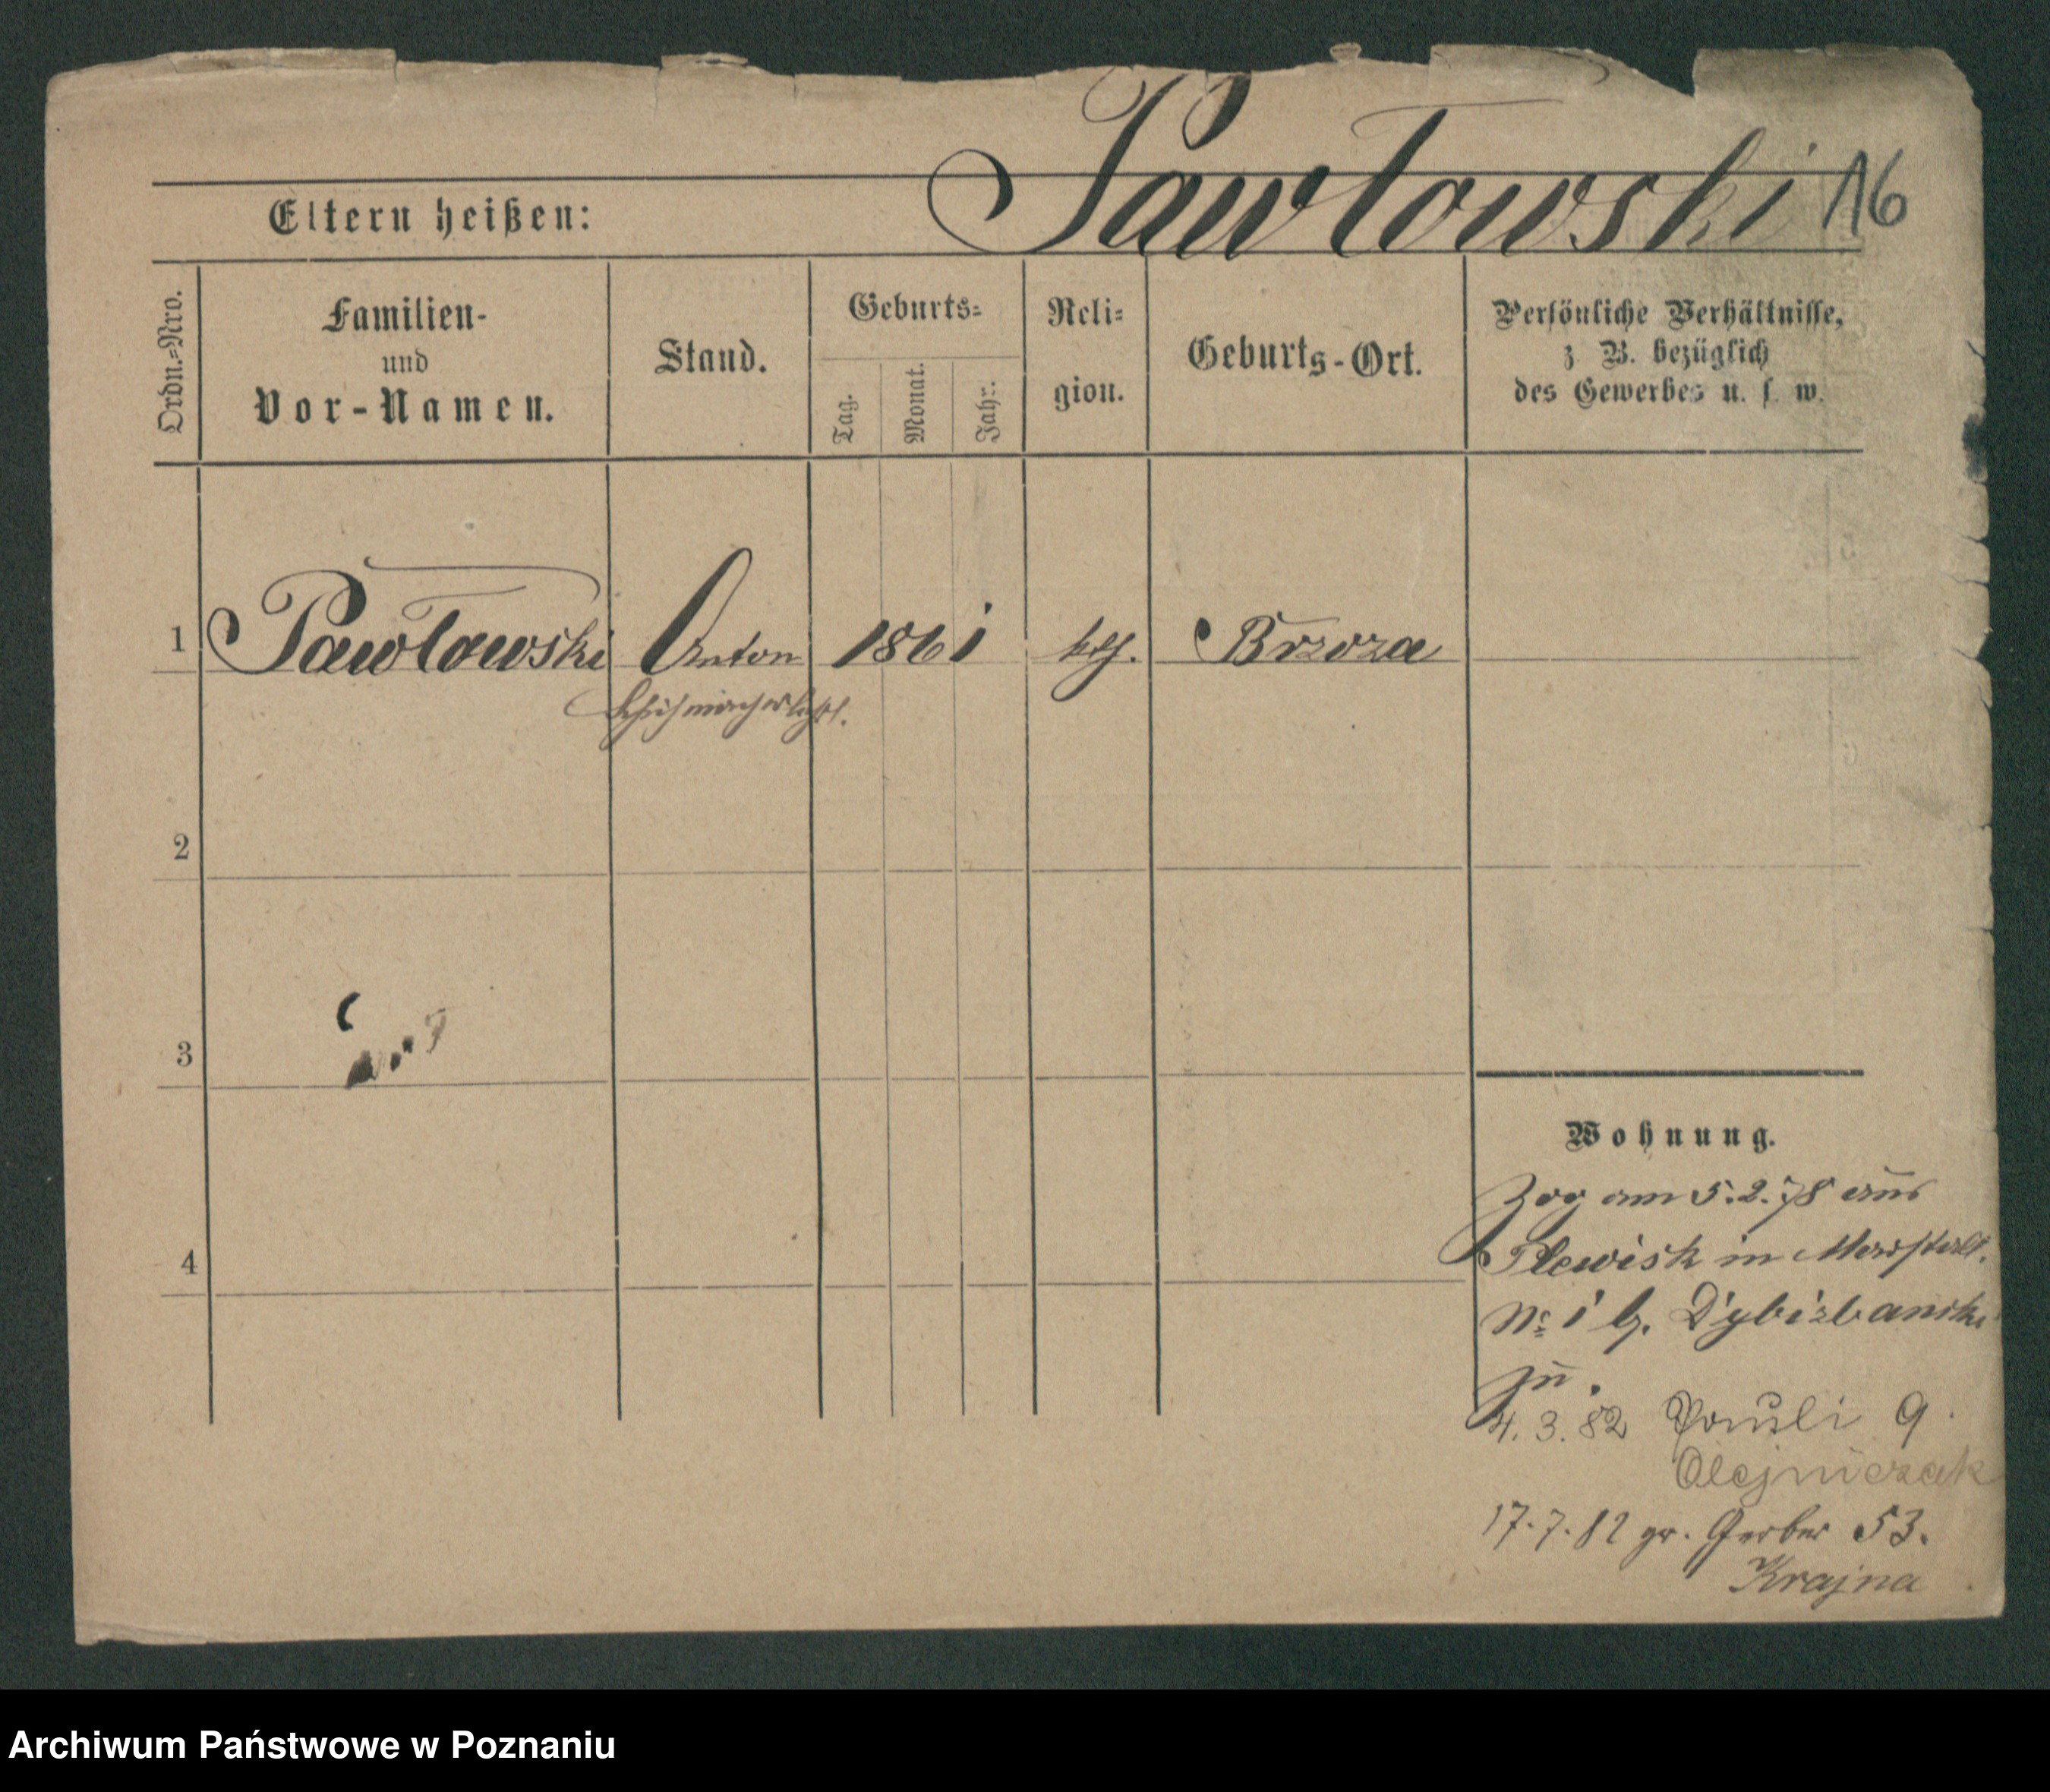 Pawlowski 16
Eltern heißen:
Ordn.=Nro.
Familien-
und
Vor-Namen.
Stand.
Geburts=
Tag.
Monat.
Jahr.
Reli=
gion.
Geburts-Ort.
Persönliche Verhältnisse,
z. B. bezüglich
des Gewerbes u. s. w.
1 Pawlowski Anton 1861 kth. Brzoza
Schuhmacherlehrl.
2
3
4
Wohnung.
Zog am 5.2.78 aus
Plewisk in
No 1 b. Dybizbanski
zu.
4. 3. 82 Pauli 9.
Olejniczak
17. 7. 82 gr. Gerber 53.
Krajna
Archiwum Państwowe w Poznaniu